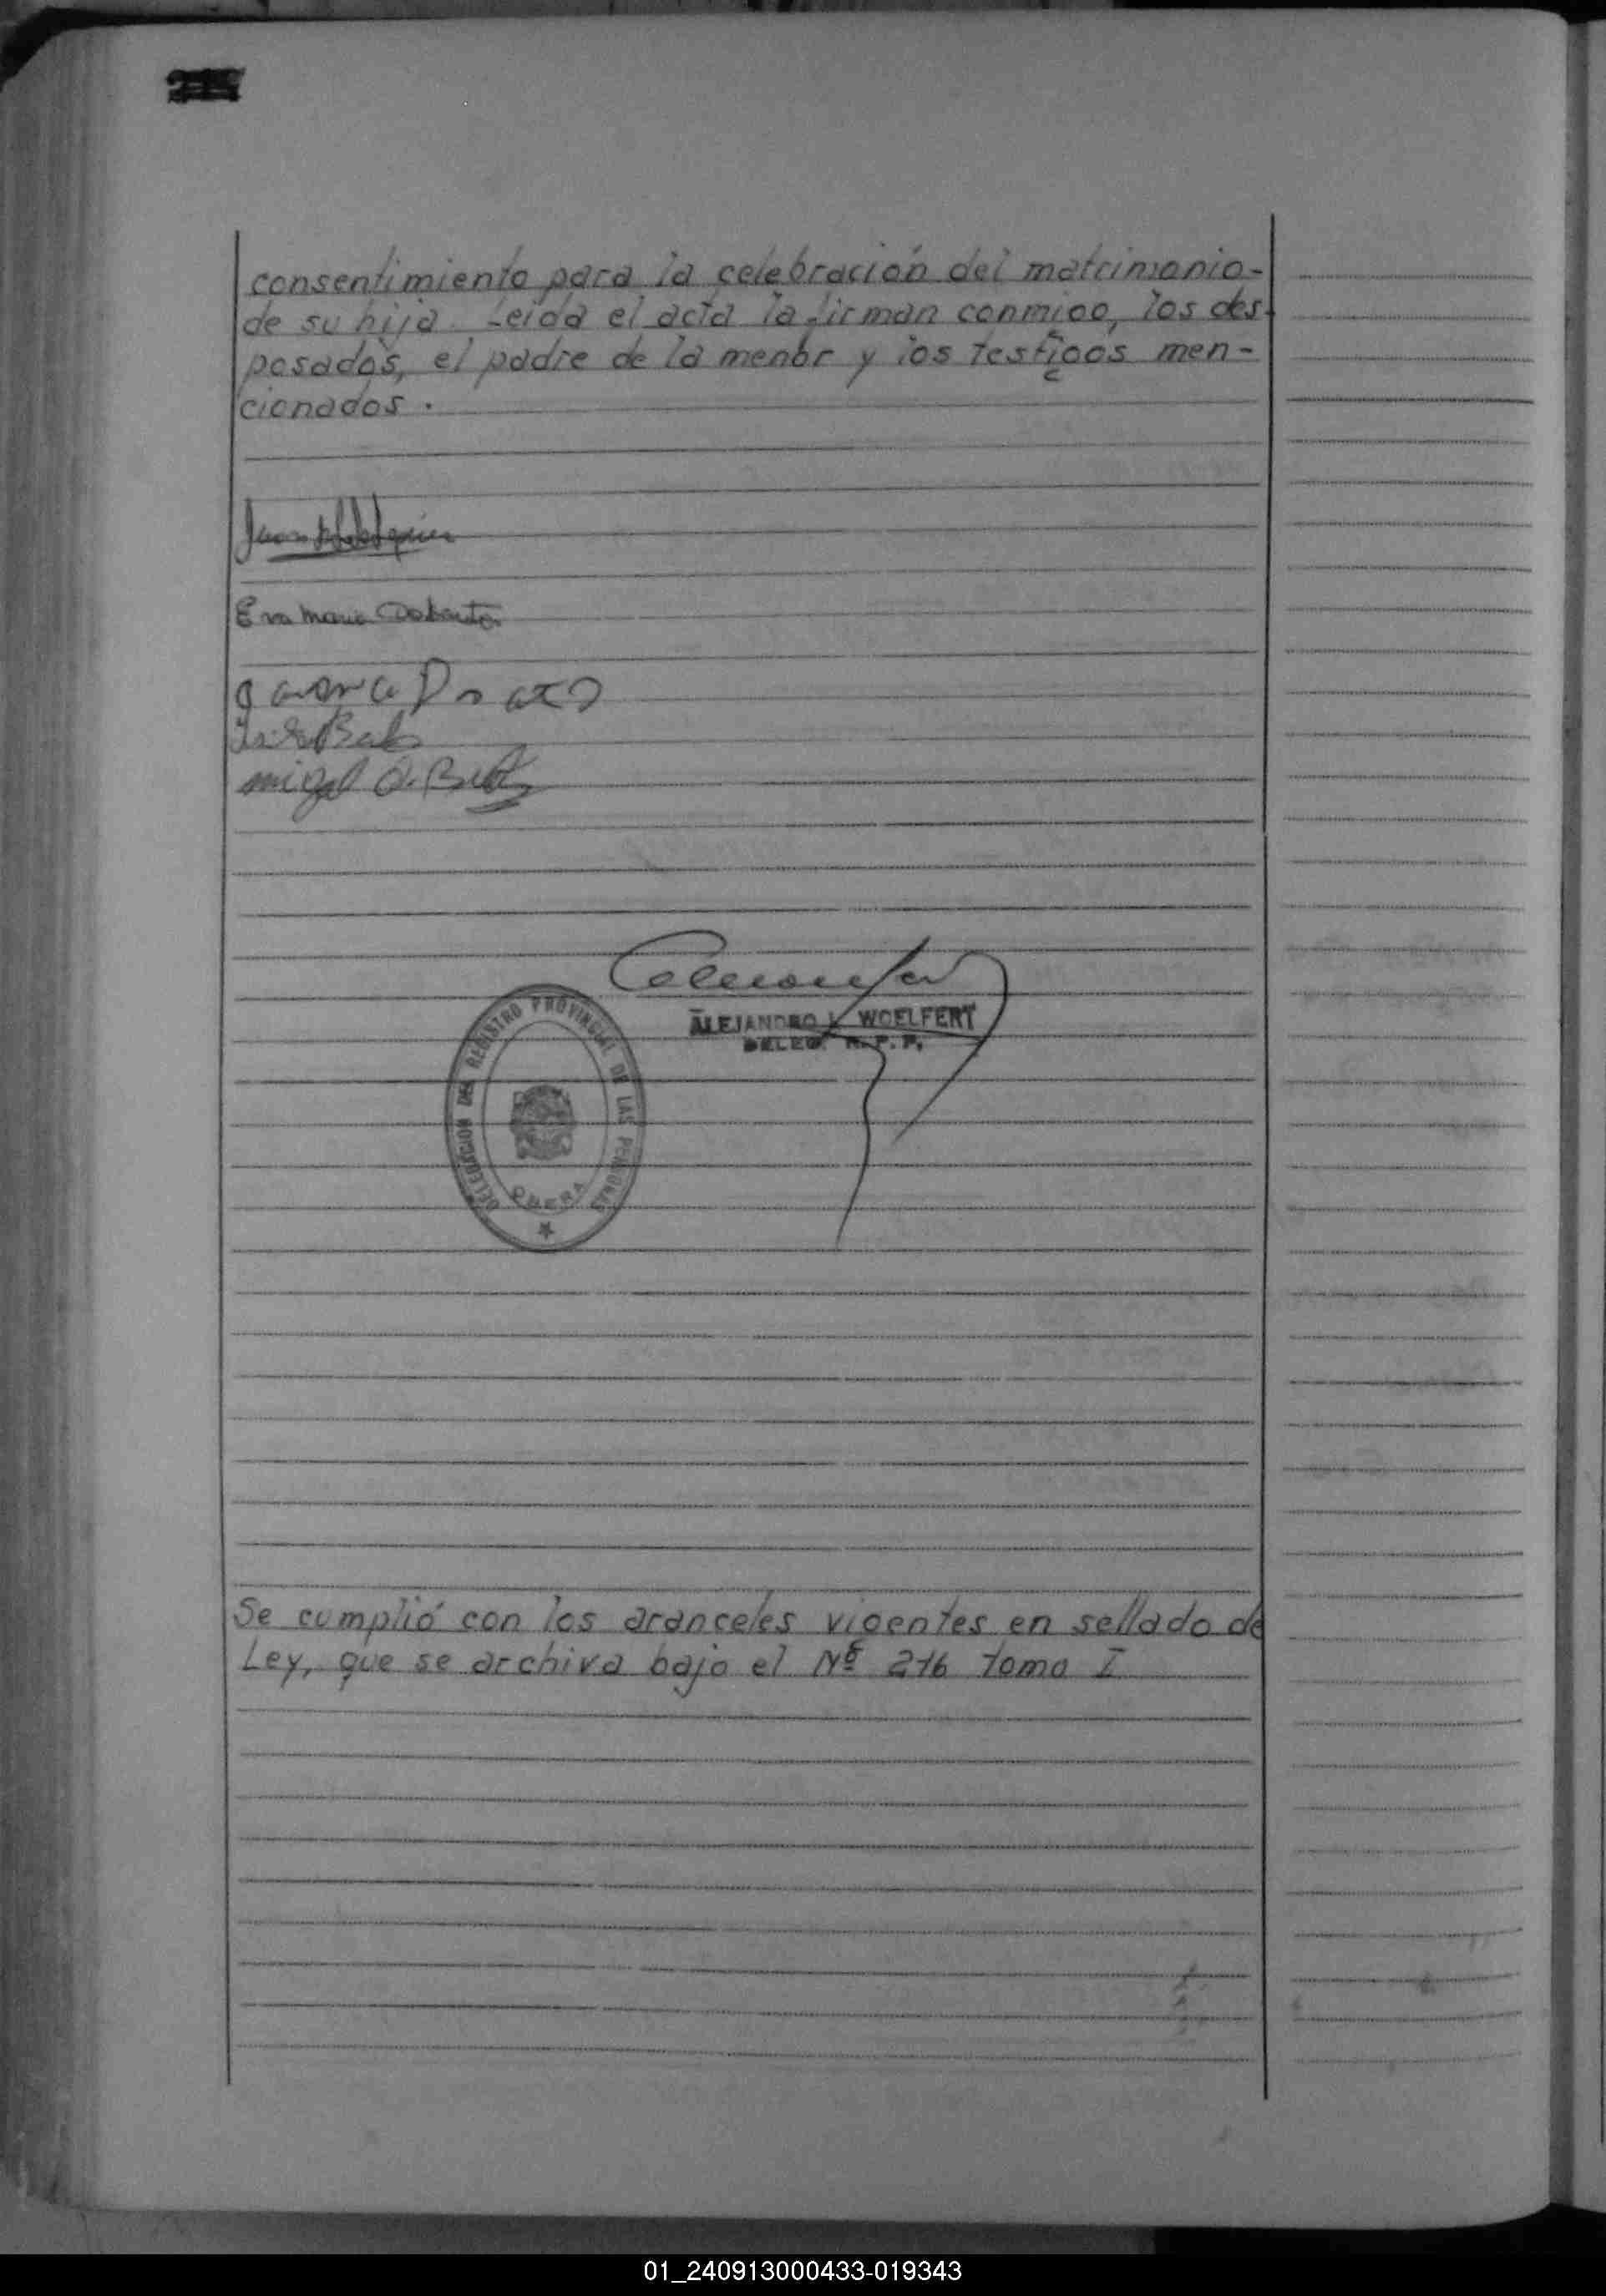 consentimiento para la celebración del matrimonio-
de su hija. Leída el acta la firman conmigo, los des-
posados, el padre de la menor y los testigos men-
cionados.
Juan
Eva Maria
ALEJANDRO L. WOELFERT
DELEG. R. P. P.
DELEGACION DEL REGISTRO PROVINCIAL DE LAS PERSONAS
OBERA
Se cumplió con los aranceles vigentes en sellado de
Ley, que se archiva bajo el Nº 216 Tomo I
01_240913000433-019343